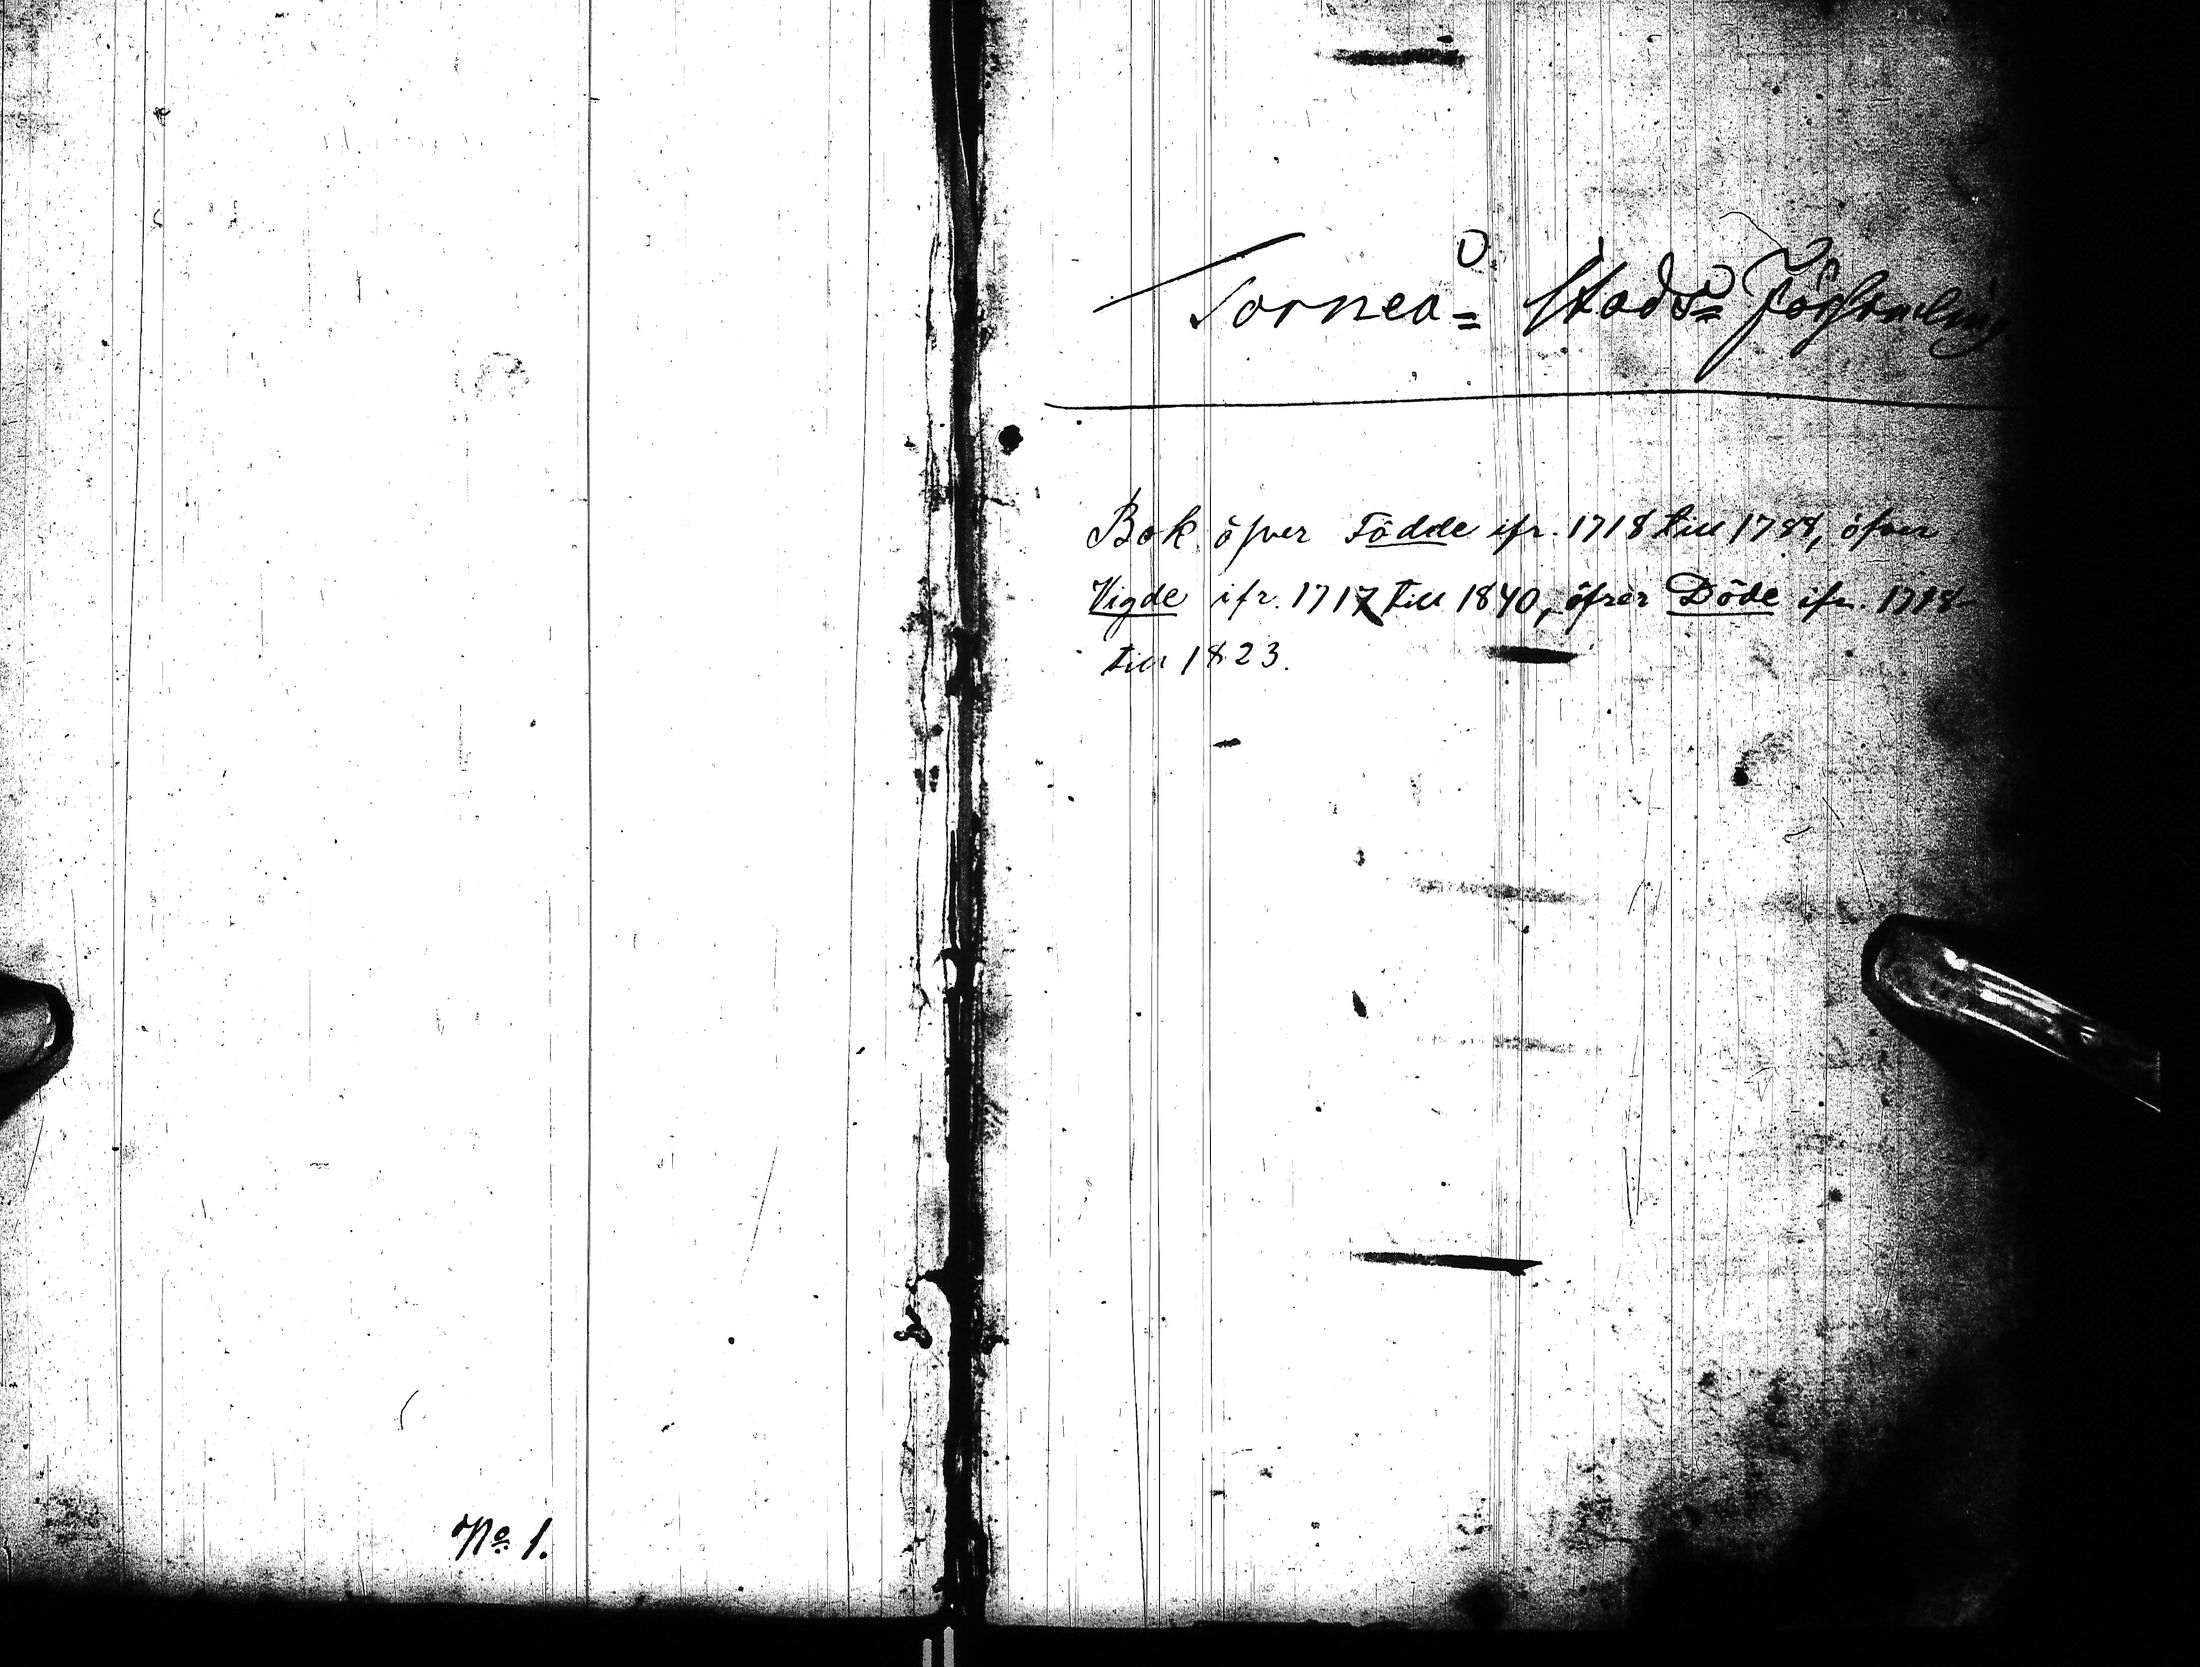 No 1.
Torneå = Stads = Församling
Bok öfver Födde ifr. 1718 till 1788, öfver
Vigde ifr. 1717 till 1840, öfver Döde ifr. 1718
till 1823.